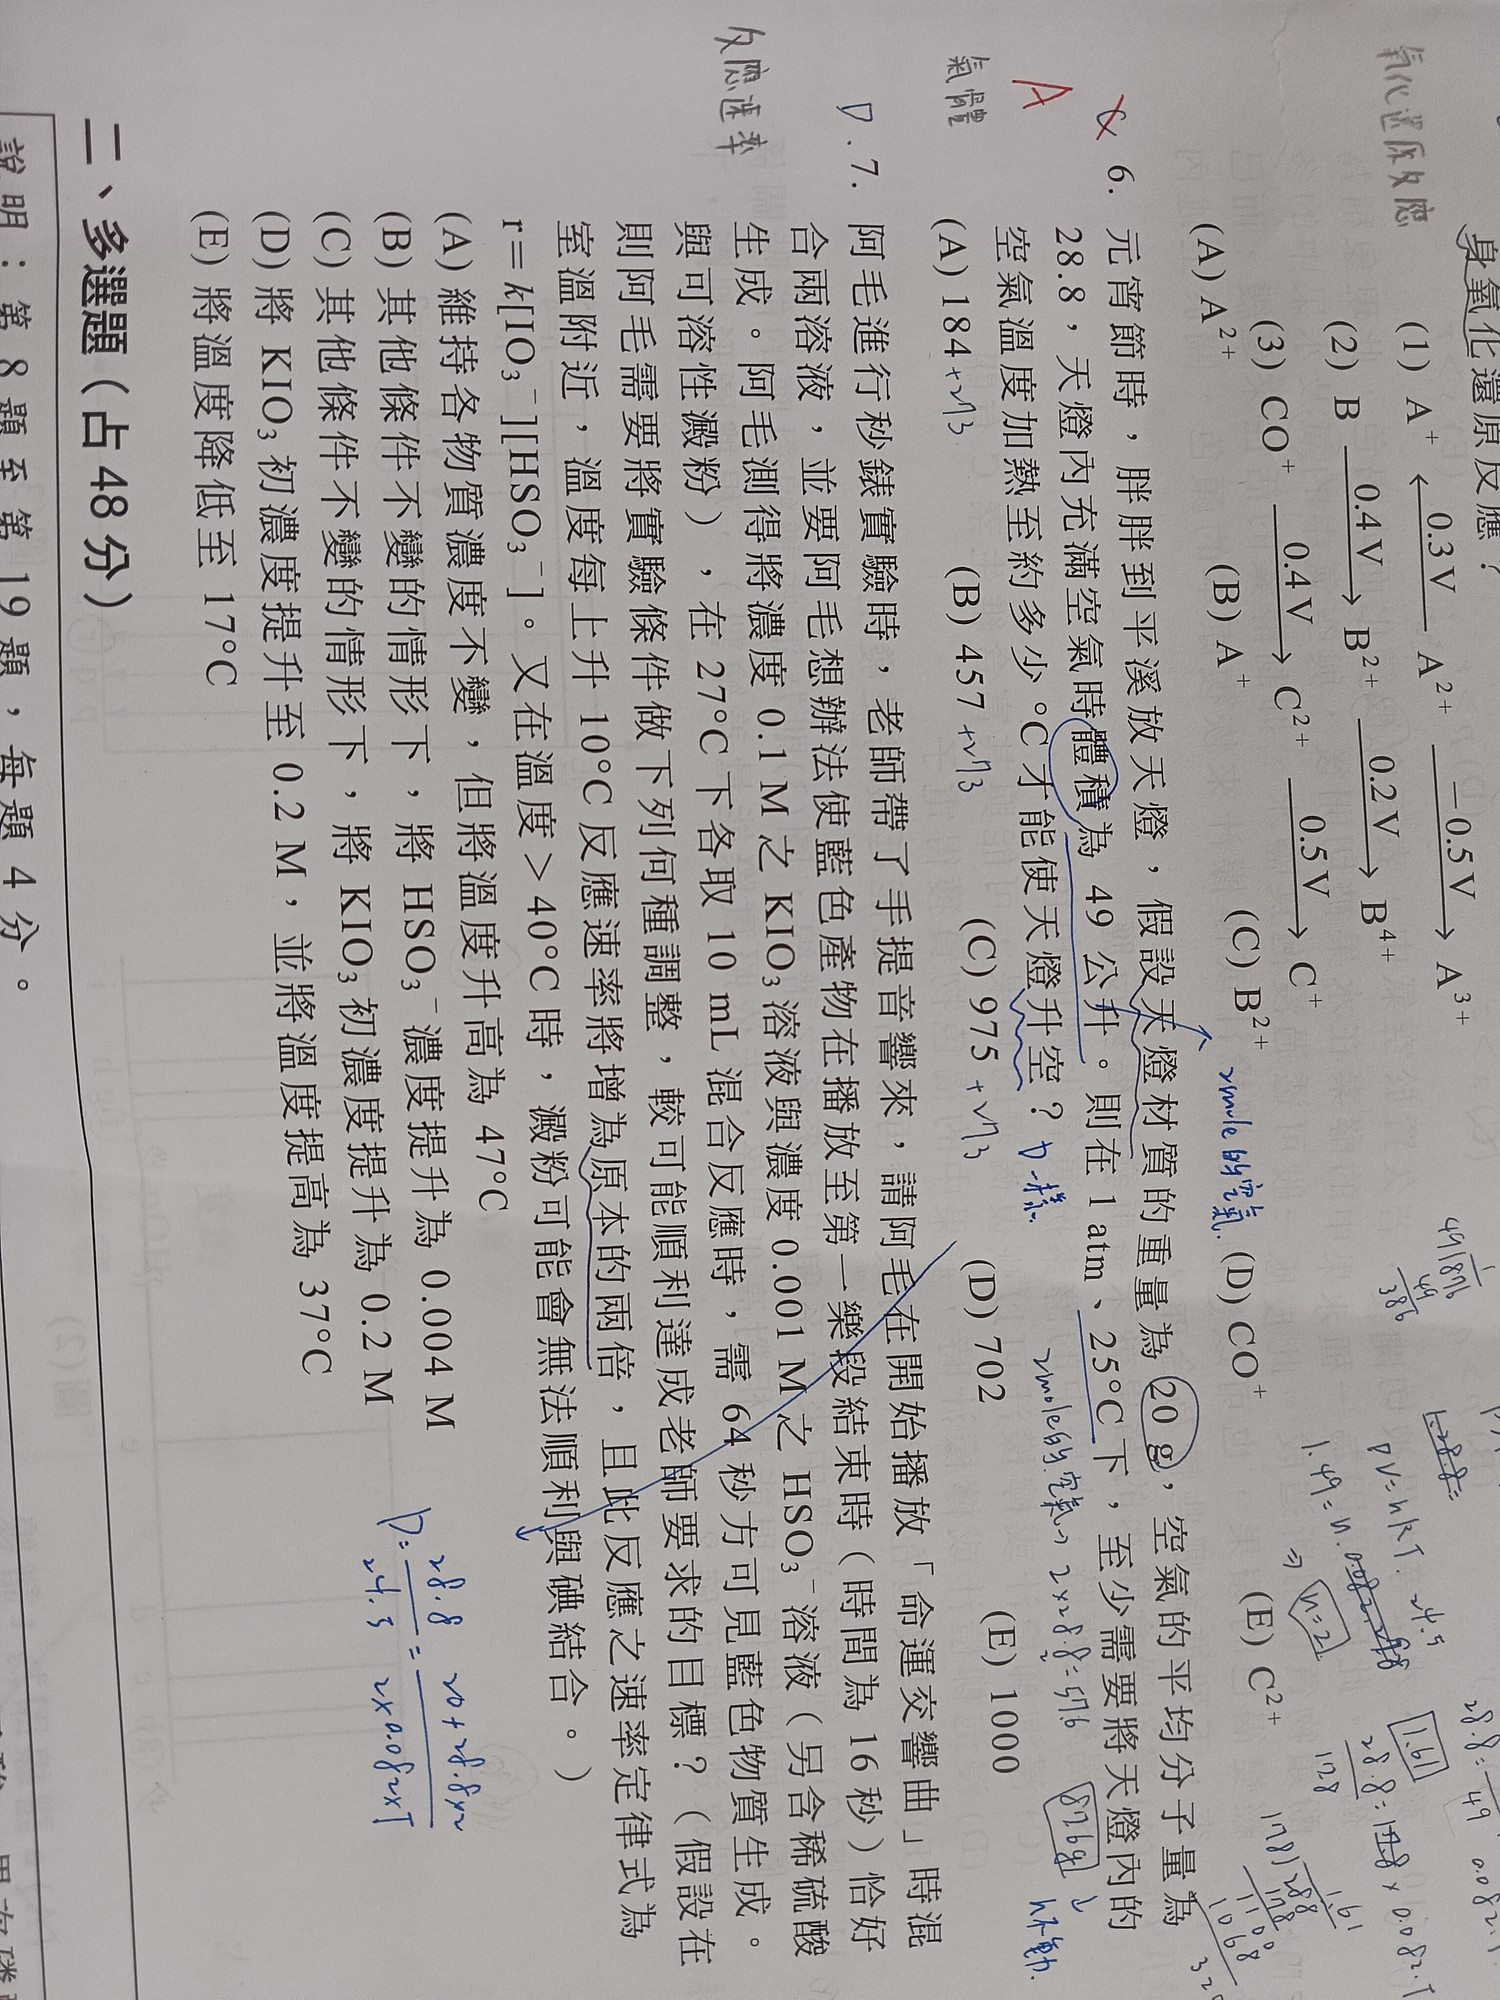 身氧化還原反應？
氧化還原反應
(1) A⁺ ← 0.3 V A²⁺ −0.5 V → A³⁺
(2) B 0.4 V → B²⁺ 0.2 V → B⁴⁺
(3) CO⁺ 0.4 V → C²⁺ 0.5 V → C⁺
(A) A²⁺ (B) A⁺ (C) B²⁺ (D) CO⁺ (E) C²⁺
PV=nRT.
⇒ n=2
16.1
2mole的空氣.
6. 元宵節時，胖胖到平溪放天燈，假設天燈材質的重量為 20 g，空氣的平均分子量為
28.8，天燈內充滿空氣時體積為 49 公升。則在 1 atm、25°C 下，至少需要將天燈內的
空氣溫度加熱至約多少 °C 才能使天燈升空？D一樣.
A
氣體
2mole的空氣⇒2×28.8=57.6
n不動.
(A) 184+273 (B) 457+273 (C) 975+273 (D) 702 (E) 1000
D. 7. 阿毛進行秒錶實驗時，老師帶了手提音響來，請阿毛在開始播放「命運交響曲」時混
合兩溶液，並要阿毛想辦法使藍色產物在播放至第一樂段結束時（時間為 16 秒）恰好
生成。阿毛測得將濃度 0.1 M 之 KIO₃ 溶液與濃度 0.001 M 之 HSO₃⁻ 溶液（另含稀硫酸
與可溶性澱粉），在 27°C 下各取 10 mL 混合反應時，需 64 秒方可見藍色物質生成。
則阿毛需要將實驗條件做下列何種調整，較可能順利達成老師要求的目標？（假設在
室溫附近，溫度每上升 10°C 反應速率將增為原本的兩倍，且此反應之速率定律式為
r = k[IO₃⁻][HSO₃⁻]。又在溫度 > 40°C 時，澱粉可能會無法順利與碘結合。）
反應速率
(A) 維持各物質濃度不變，但將溫度升高為 47°C
(B) 其他條件不變的情形下，將 HSO₃⁻ 濃度提升為 0.004 M
(C) 其他條件不變的情形下，將 KIO₃ 初濃度提升為 0.2 M
(D) 將 KIO₃ 初濃度提升至 0.2 M，並將溫度提高為 37°C
(E) 將溫度降低至 17°C
D= 28.8/24.5 = 20+28.8×2/2×0.082×T
二、多選題（占 48 分）
說明：第 8 題至第 19 題，每題 4 分。